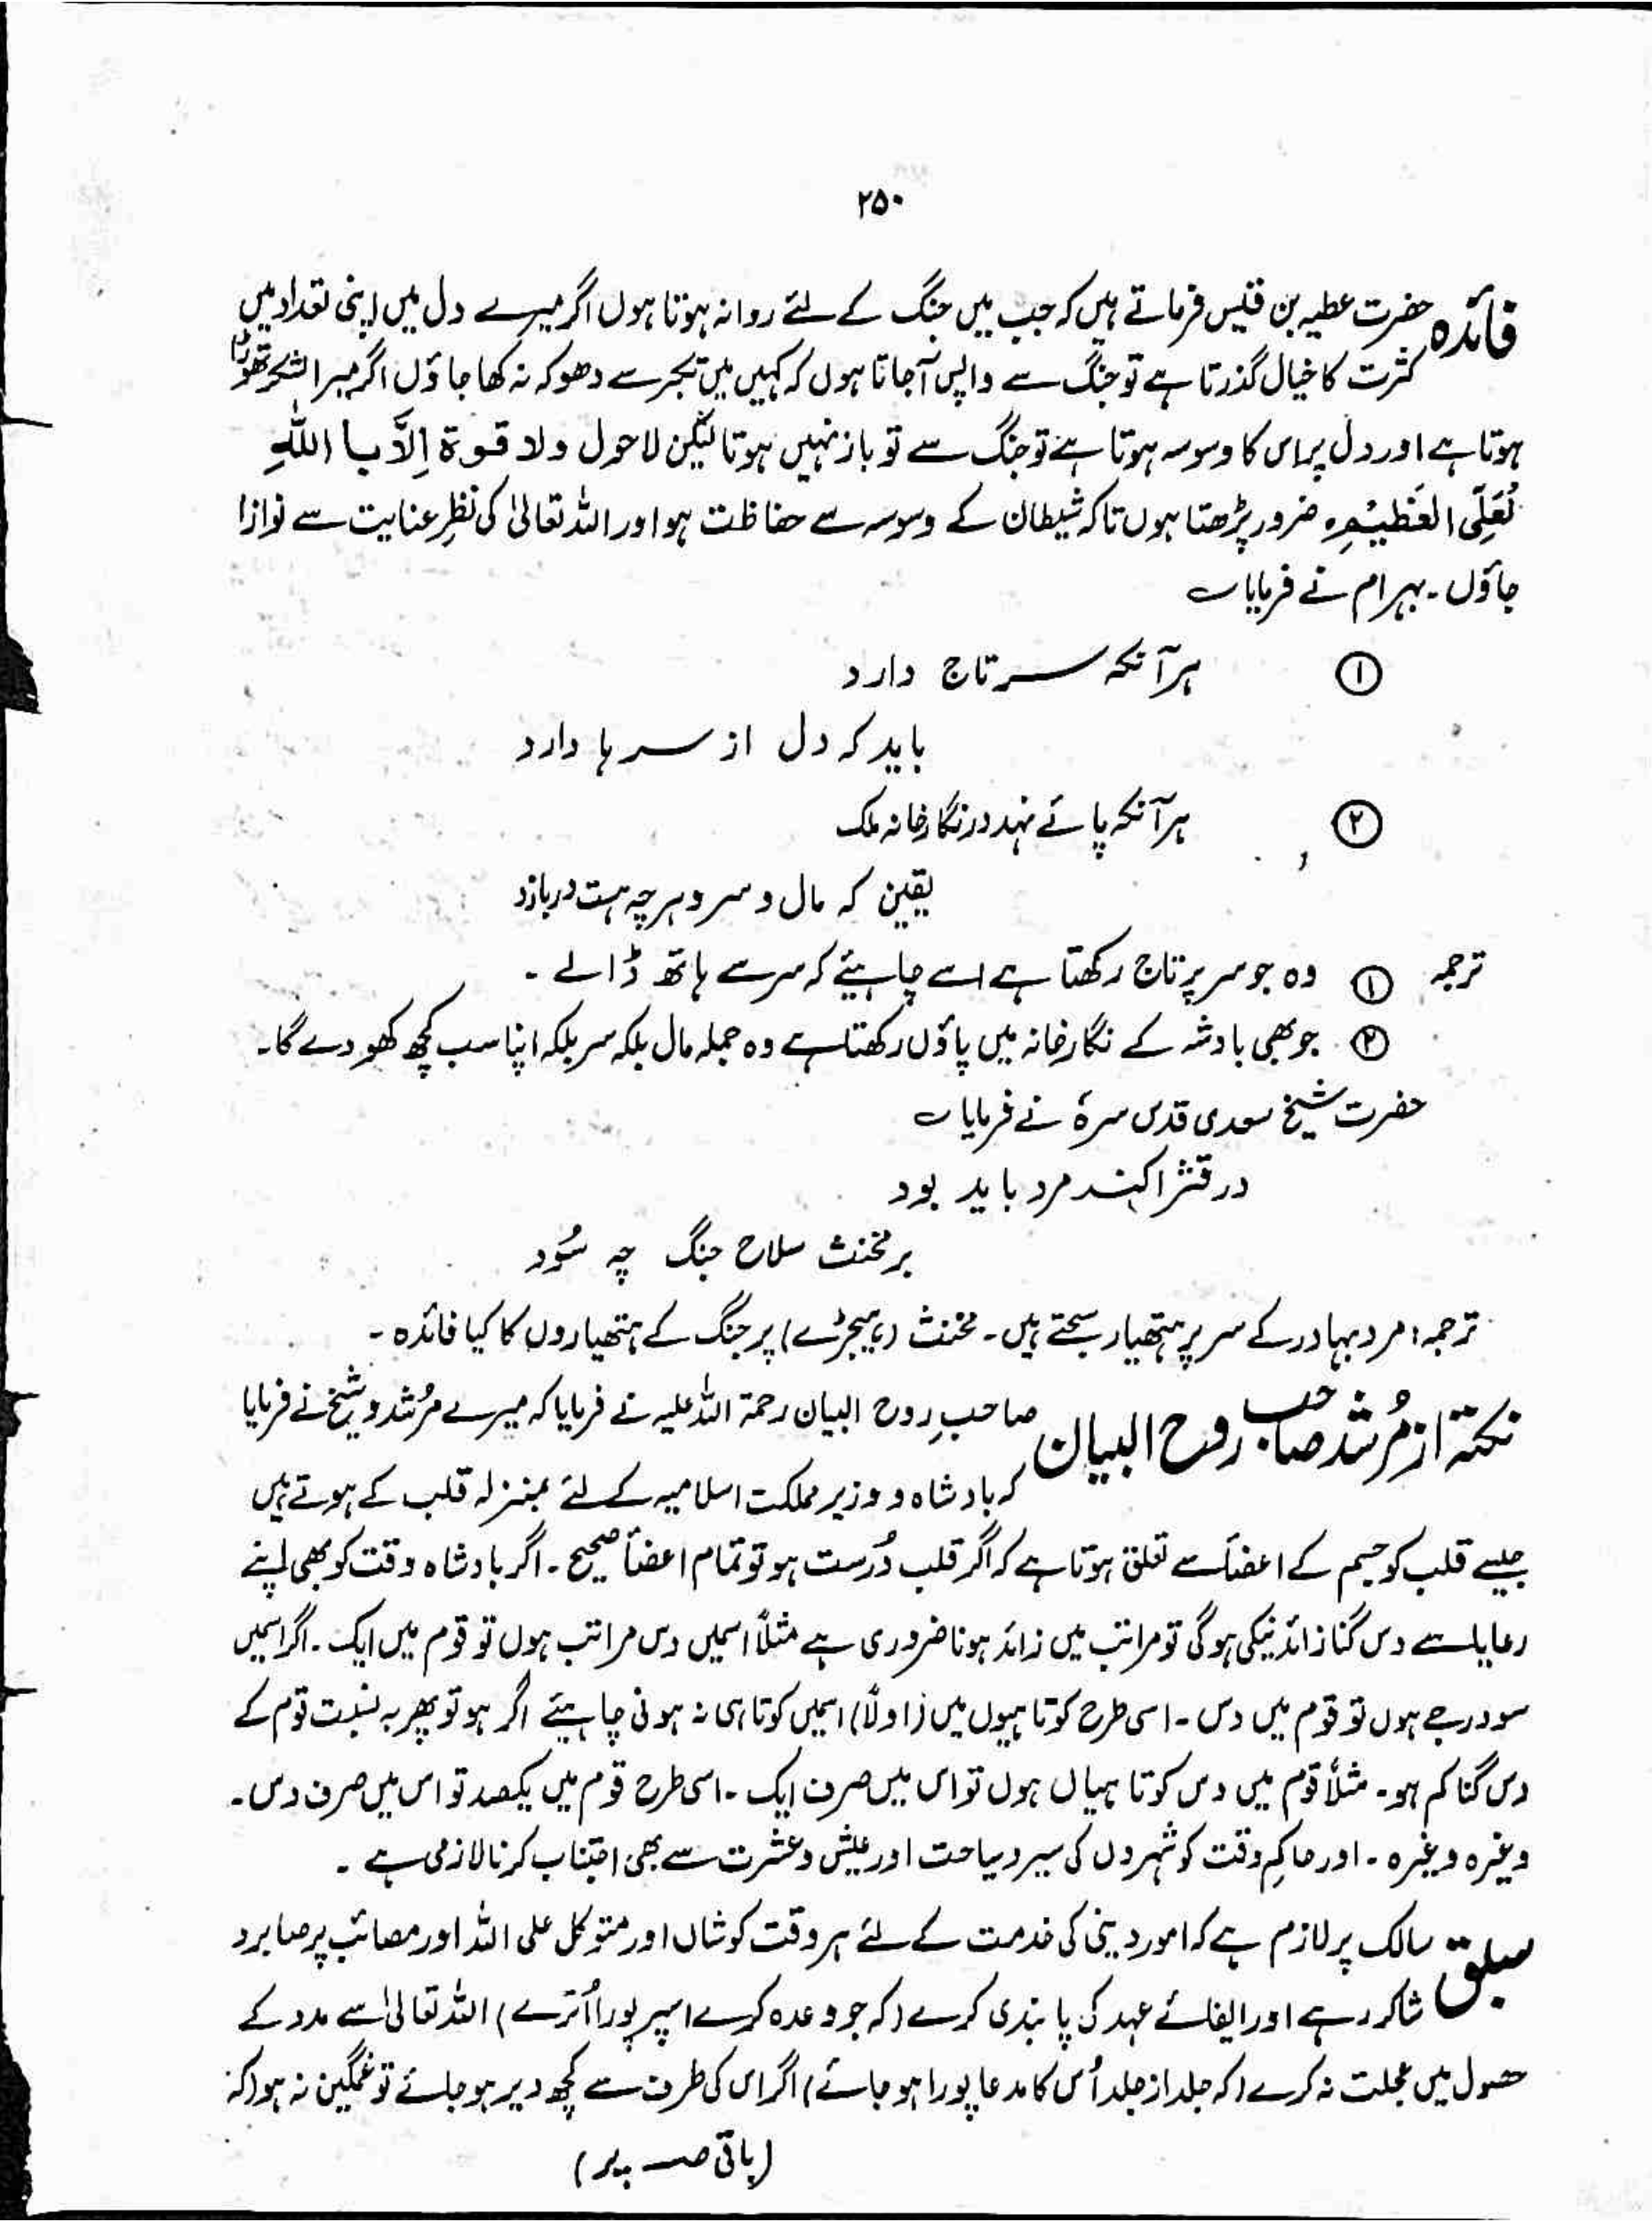 ۲۵۰
فائدہ حضرت عطیہ بن قیس فرماتے ہیں کہ جب میں جنگ کے لئے روانہ ہوتا ہوں اگر میرے دل میں اپنی تعداد میں
کثرت کا خیال گذرتا ہے تو جنگ سے واپس آجاتا ہوں کہ کہیں میں تکبر سے دھوکہ نہ کھا جاؤں اگر میرا لشکر تھوڑا
ہوتا ہے اور دل پر اس کا وسوسہ ہوتا ہے تو جنگ سے تو باز نہیں ہوتا لیکن لاحول ولا قوۃ اِلَّا باللّٰہِ
لْعَلِّی العَظِیْمِ ضرور پڑھتا ہوں تاکہ شیطان کے وسوسہ سے حفاظت ہو اور اللہ تعالیٰ کی نظرِ عنایت سے نوازا
جاؤں ۔ بہرام نے فرمایا ؎
① ہر آنکہ سر تاج دارد
باید کہ دل از سر ہا دارد
② ہر آنکہ پائے نہد در نگار خانہ ملک
یقین کہ مال و سر و ہر چہ ہست دربازد
ترجمہ ① وہ جو سر پر تاج رکھتا ہے اسے چاہیئے کہ سر سے ہاتھ ڈالے ۔
② جو بھی بادشہ کے نگار خانہ میں پاؤں رکھتا ہے وہ جملہ مال بلکہ سر بلکہ اپنا سب کچھ کھو دے گا ۔
حضرت شیخ سعدی قدس سرہٗ نے فرمایا ؎
در قنژاکند مرد باید بود
بر مخنث سلاح جنگ چہ سُود
ترجمہ: مرد بہادر کے سر پر ہتھیار سجتے ہیں ۔ مخنث (ہیجڑے) پر جنگ کے ہتھیاروں کا کیا فائدہ ۔
نکتہ از مُرشد صاحب روح البیان صاحبِ روح البیان رحمۃ اللہ علیہ نے فرمایا کہ میرے مُرشد و شیخ نے فرمایا
کہ بادشاہ و وزیر مملکت اسلامیہ کے لئے بمنزلہ قلب کے ہوتے ہیں
جیسے قلب کو جسم کے اعضأ سے تعلق ہوتا ہے کہ اگر قلب دُرست ہو تو تمام اعضأ صحیح ۔ اگر بادشاہ وقت کو بھی اپنے
رعایا سے دس گنا زائد نیکی ہوگی تو مراتب میں زائد ہونا ضروری ہے مثلاً اسمیں دس مراتب ہوں تو قوم میں ایک ۔ اگر اسمیں
سو درجے ہوں تو قوم میں دس ۔ اسی طرح کوتاہیوں میں (اولاً) اسمیں کوتاہی نہ ہونی چاہیئے اگر ہو تو پھر بہ نسبت قوم کے
دس گنا کم ہو ۔ مثلاً قوم میں دس کوتاہیاں ہوں تو اس میں صرف ایک ۔ اسی طرح قوم میں یکصد تو اس میں صرف دس ۔
وغیرہ وغیرہ ۔ اور حاکمِ وقت کو شہروں کی سیر و سیاحت اور عیش و عشرت سے بھی اجتناب کرنا لازمی ہے ۔
سبق سالک پر لازم ہے کہ امور دینی کی خدمت کے لئے ہر وقت کوشاں اور متوکل علی اللہ اور مصائب پر صابر و
شاکر رہے اور ایفائے عہد کی پابندی کرے (کہ جو وعدہ کرے اسپر پورا اُترے) اللہ تعالیٰ سے مدد کے
حصول میں عجلت نہ کرے (کہ جلد از جلد اُس کا مدعا پورا ہو جائے) اگر اس کی طرف سے کچھ دیر ہو جائے تو غمگین نہ ہو (کہ
(باقی صـ پر)